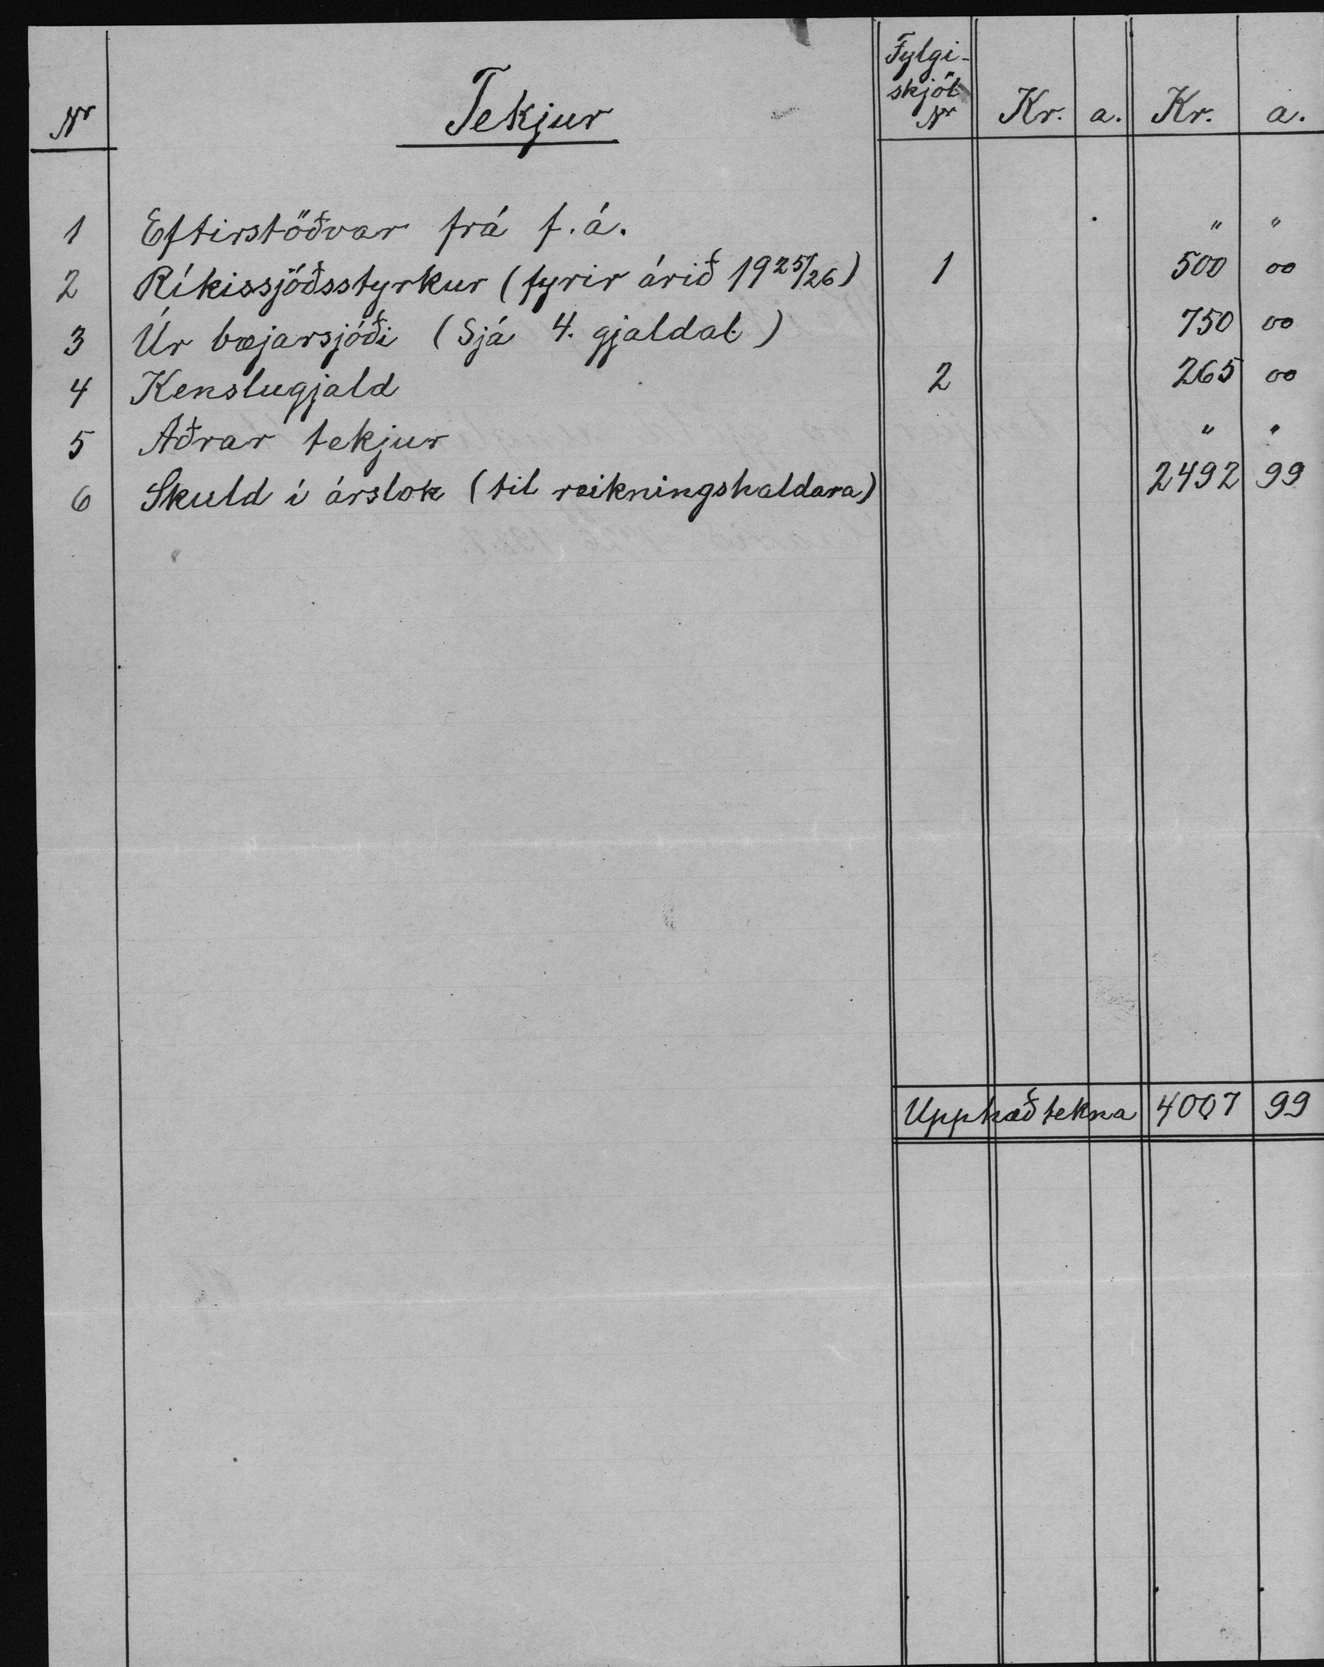 Nr Tekjur Fylgiskjöl Nr Kr. a. Kr. a.
1 Eftirstöðvar frá f.á. " "
2 Ríkissjóðsstyrkur (fyrir árið 1925/26) 1 500 00
3 Úr bæjarsjóði (Sjá 4. gjaldal.) 750 00
4 Kenslugjald 2 265 00
5 Aðrar tekjur " "
6 Skuld í árslok (til reikningshaldara) 2492 99
Upphæð tekna 4007 99